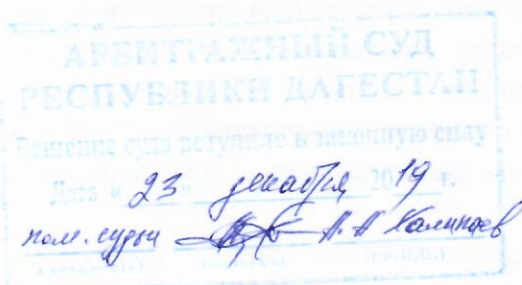 АРБИТРАЖНЫЙ СУД
РЕСПУБЛИКИ ДАГЕСТАН
Решение суда вступило в законную силу
Дата « 23 » декабря 2019 г.
пом. судьи